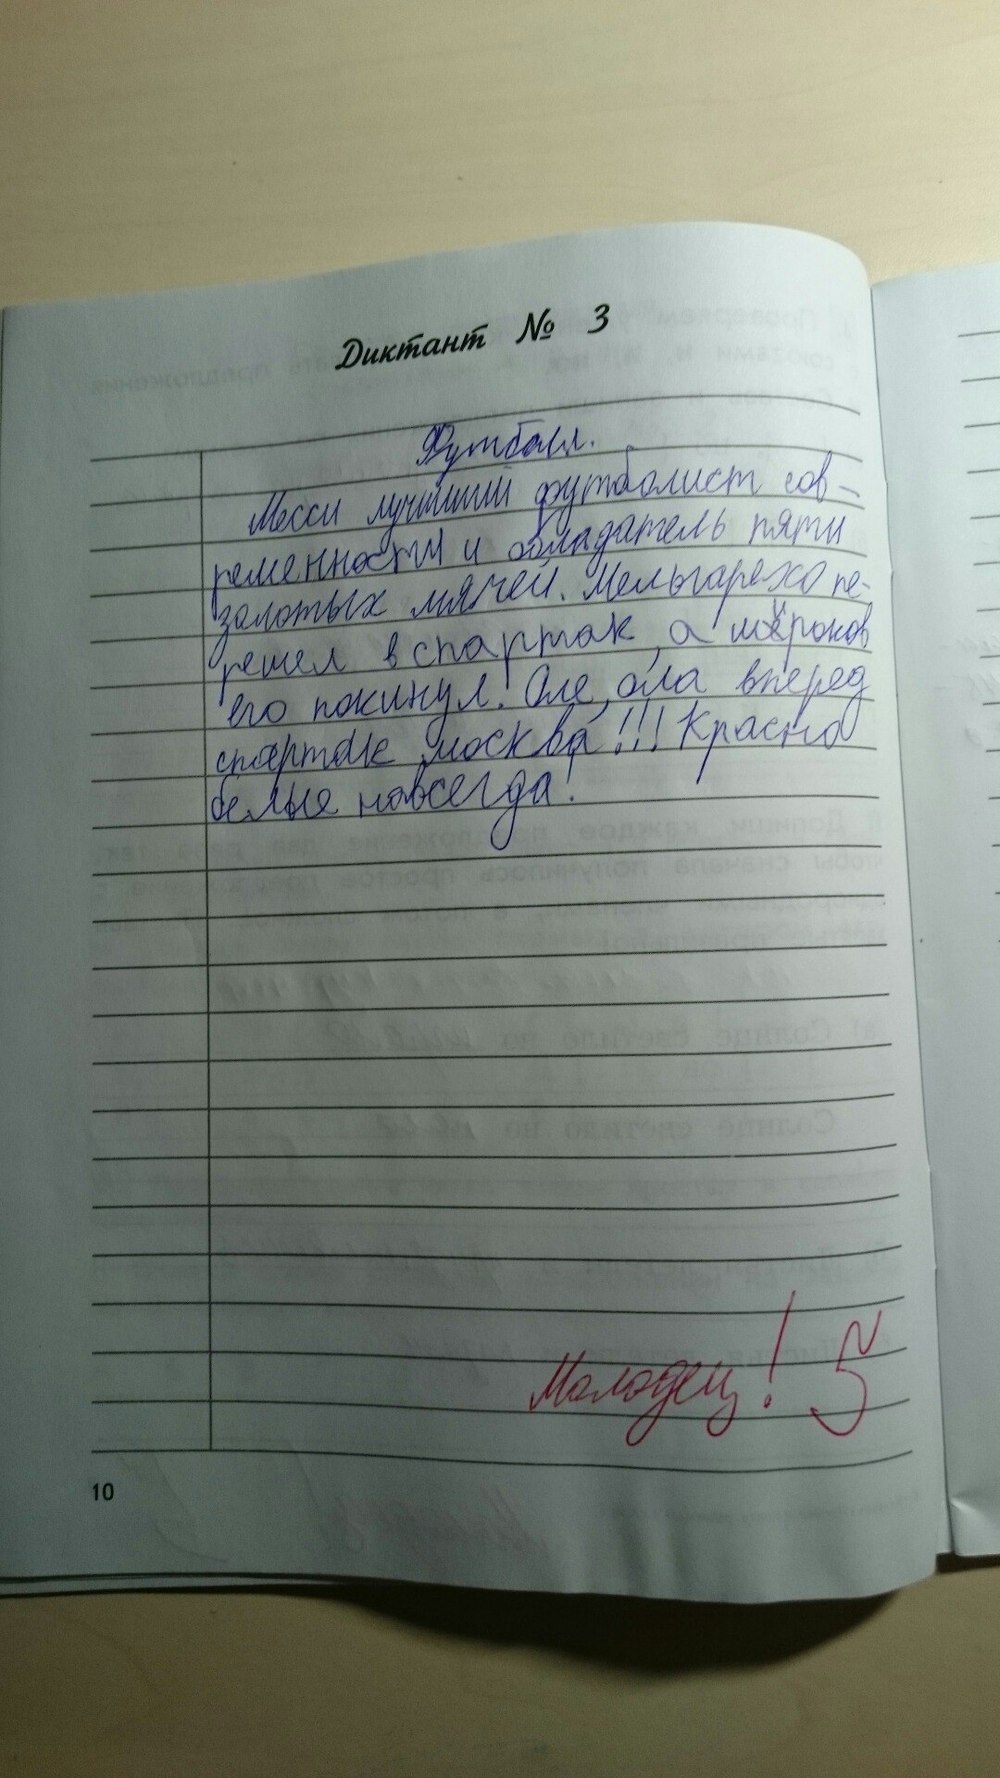 Диктант № 3
Футболл.
Месси лучший футболист сов-
ременности и обладатель пяти
золотых мячей. Мельгарехо пе-
решел в спартак, а широков
его покинул. Оле, ола вперед
спартак москва!!! Красно
белые навсегда!
Молодец! 5
10